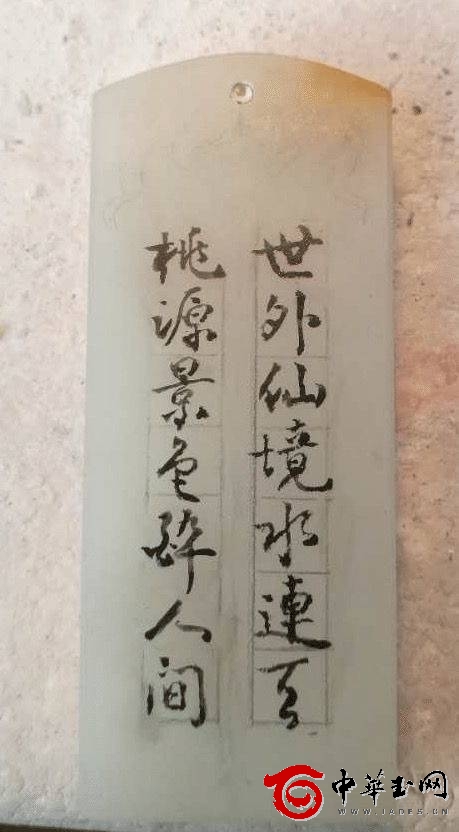 世外仙境水連天
桃源景色醉人间
中華玉网
WWW.JADES.CN